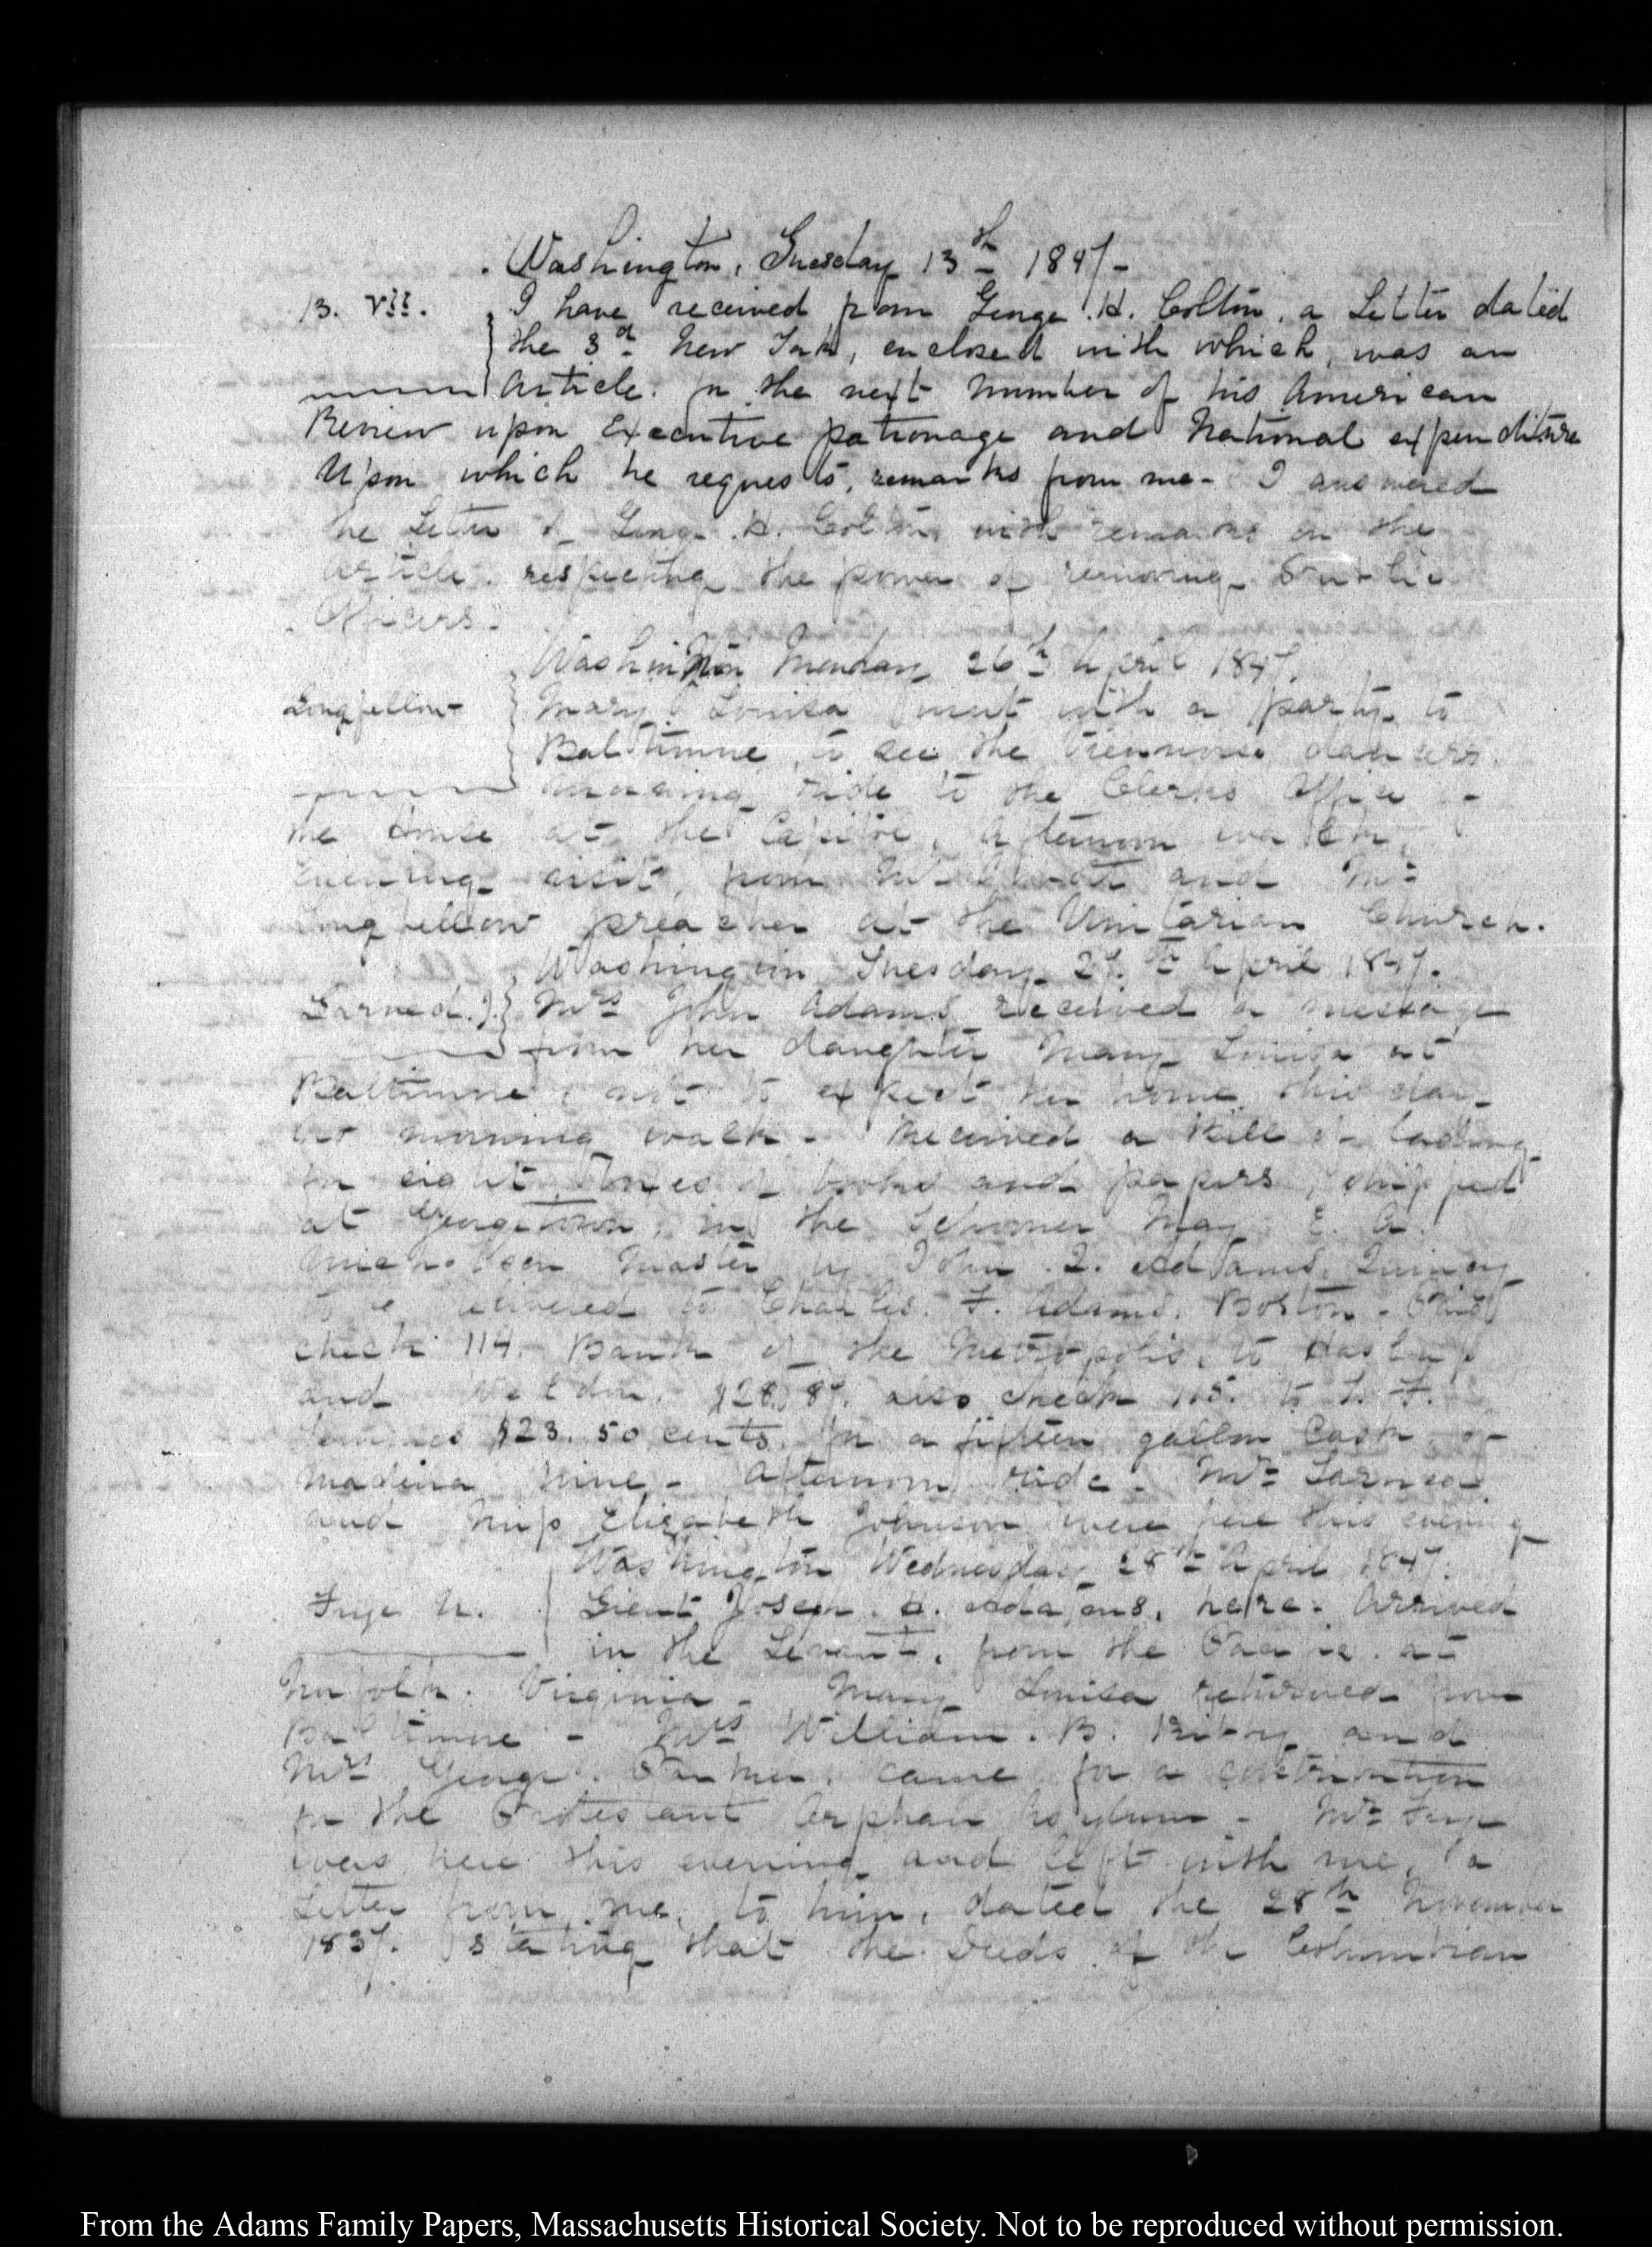 Washington, Tuesday 13th 1847-
13. VII. I have received from George. H. Colton, a Letter dated
the 3d New York, enclosed with which, was an
Article. for the next number of his American
Review upon Executive patronage and National expenditure
Upon which he requests, remarks from me- I answered
the Letter of George. H. Colton, with remarks on the
Article. respecting the power of removing Public
Officers.
Washington Monday 26th April 1847.
Longfellow Mary Louisa went with a party to
Baltimore, to see the Viennoise dancers.
morning ride to the Clerks Office -
the House at the Capitol, Afternoon walk,
Evening visit, from Mr and Mr
Longfellow preacher at the Unitarian Church.
Washington Tuesday 27.th April 1847.
Larned. J. Mrs John Adams received a message
from her daughter Mary Louisa at
Baltimore, not to expect her home this day
morning walk - Received a Bill of lading
for eight Boxes of books and papers, shipped
at Georgetown, in the Schooner May E. A.
Master by John. Q. Adams, Quincy
to be delivered to Charles. F. Adams. Boston - Paid
check 114. Bank of the Metropolis, to
and $28. 87. also check 115. to
$23. 50 cents. for a fifteen gallon Cask of
Madeira wine - Afternoon ride. Mr Larned
and Miss Elizabeth Johnson were here this evening
Washington Wednesday 28th April 1847.
Frye N. Lieut Joseph. H. Adams, here. Arrived
in the Levant, from the Pacific. at
Norfolk. Virginia - Mary Louisa returned from
Baltimore - Mrs William. B. and
Mrs George. Parker, came for a contribution
for the Protestant Orphan Asylum - Mr Frye
was here this evening and left with me, a
Letter from me, to him, dated the 28th November
1837. stating that the Deeds of the Columbian
From the Adams Family Papers, Massachusetts Historical Society. Not to be reproduced without permission.